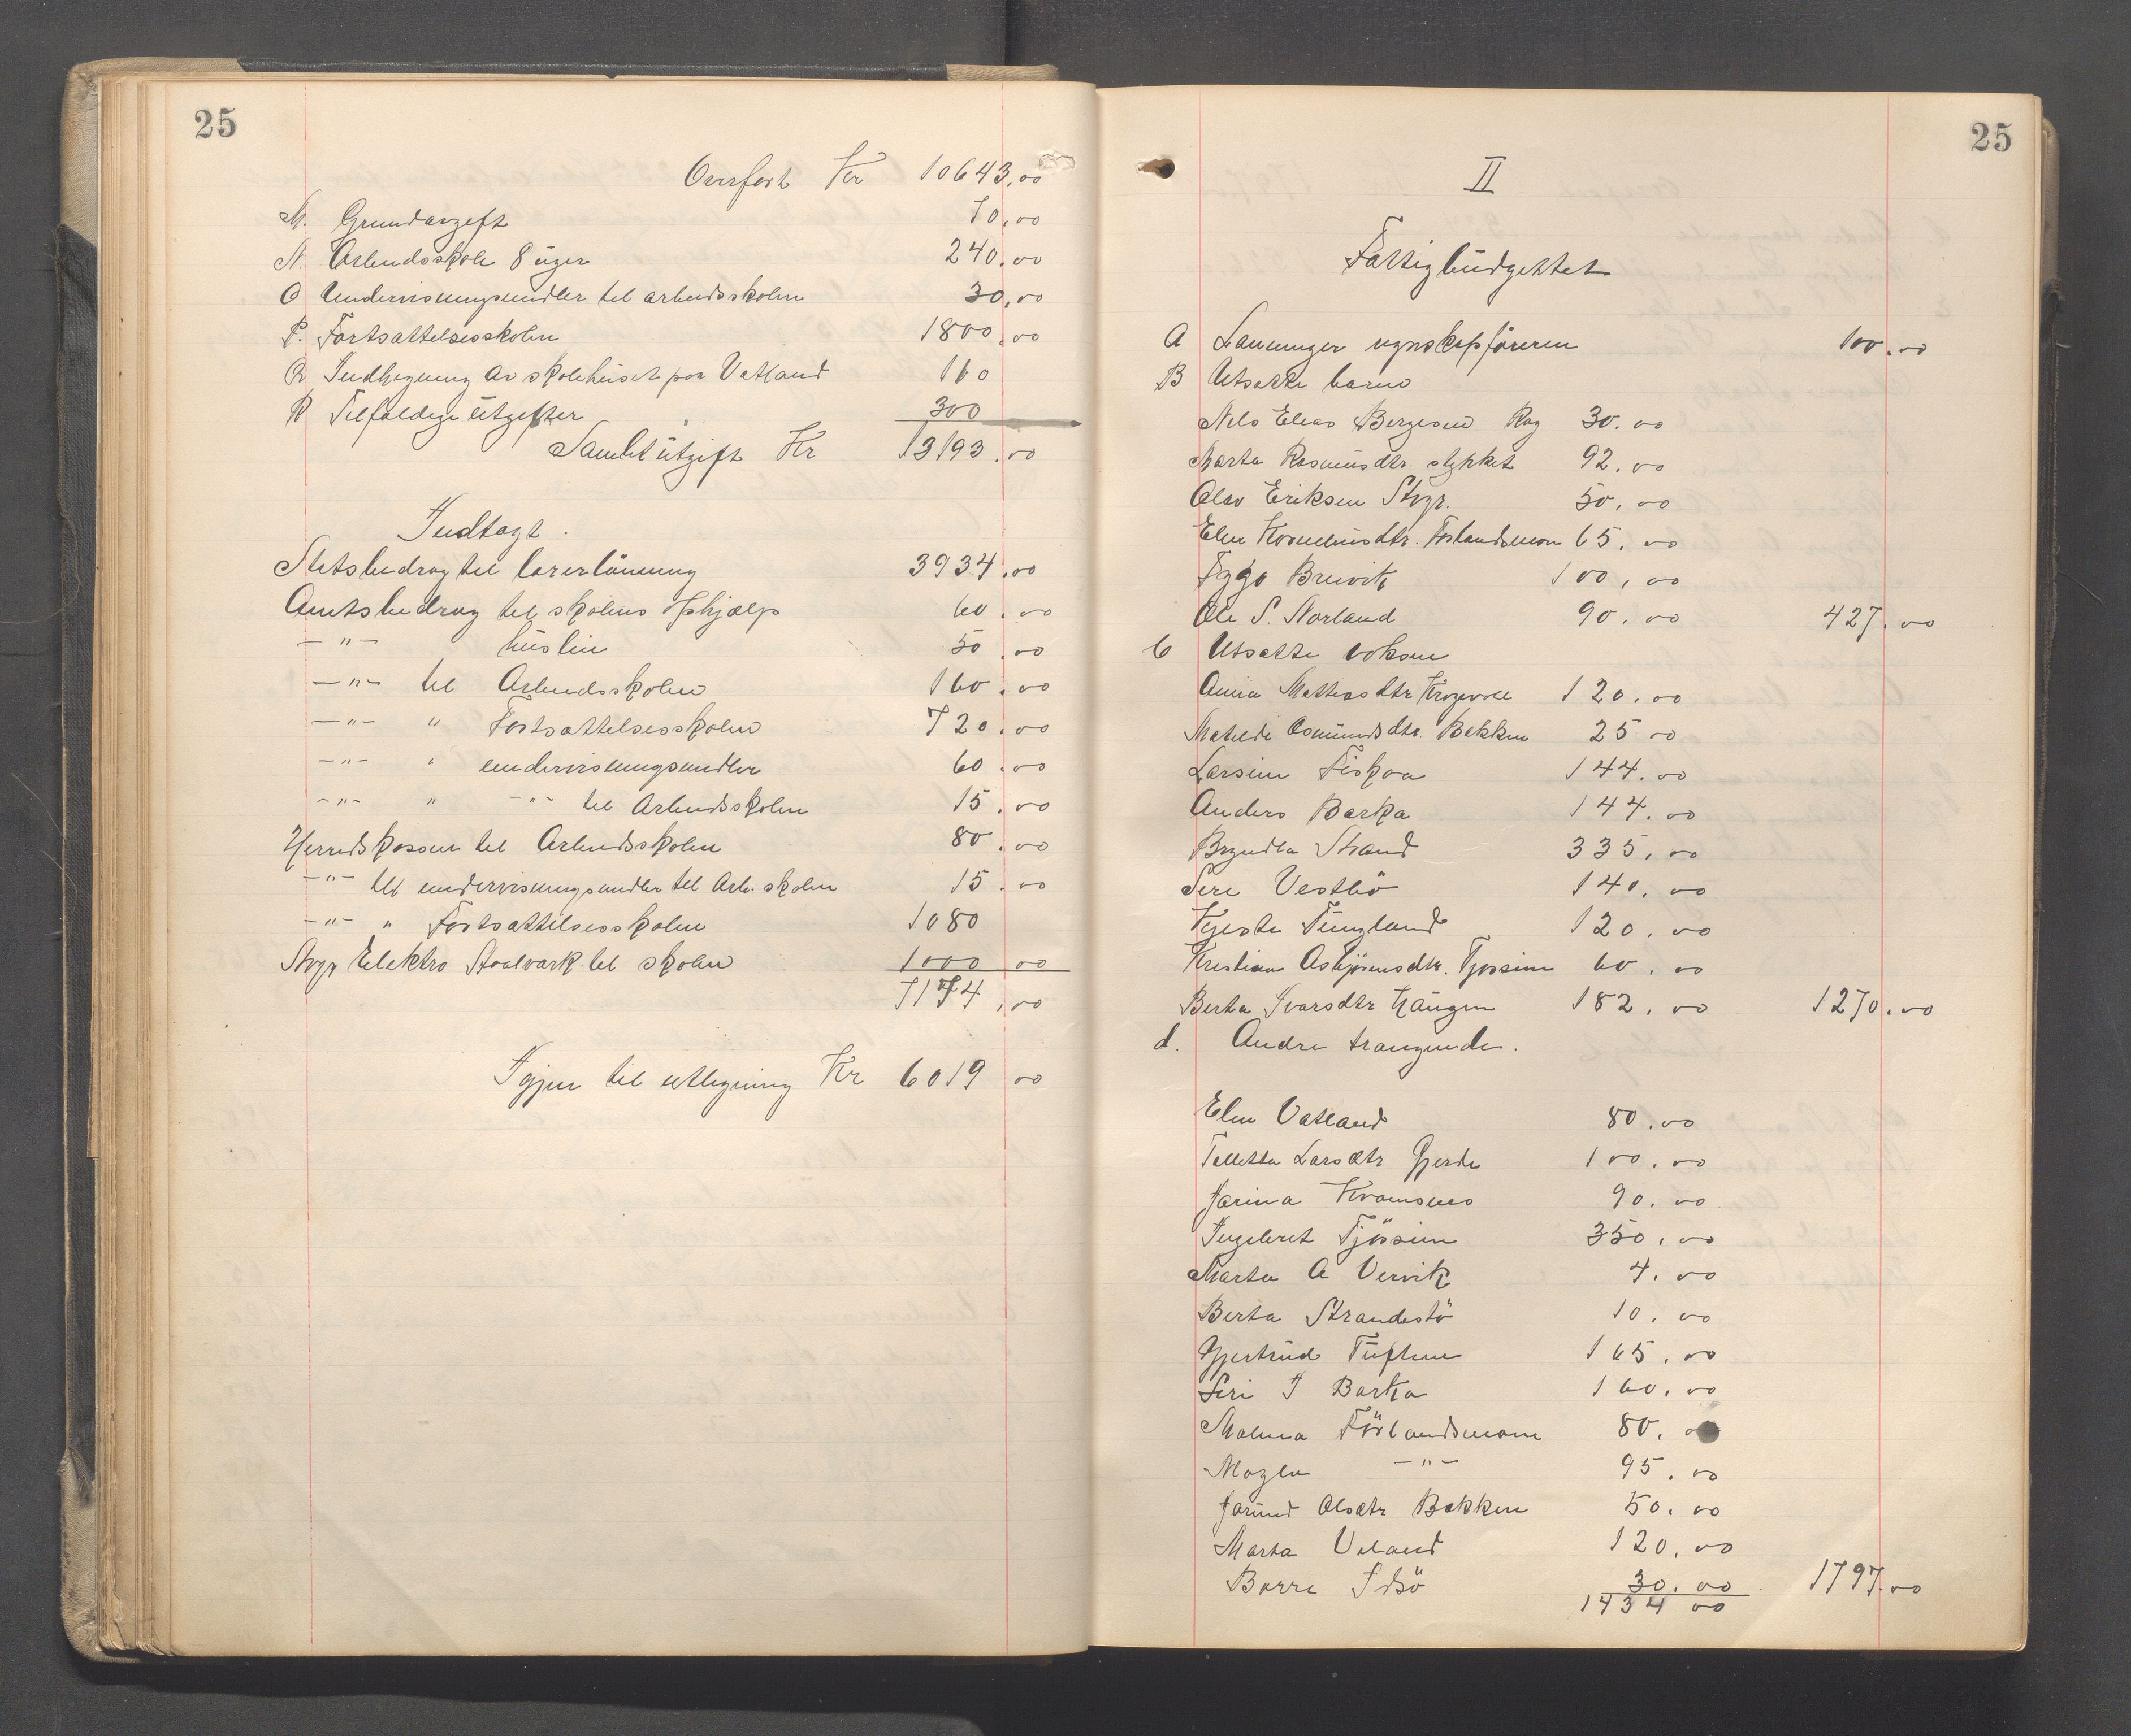 25
Overført Kr 10643,00
M. Grundavgift 70,00
N. Arbeidsskole 8 uger 240,00
O Undervisningsmidler til arbeidsskolen 30,00
P. Fortsættelsesskolen 1800,00
Q Indhegning av skolehuset paa Vatland 110
R Tilfældige utgifter 300
Samlet utgift Kr 13193.00
Indtægt.
Statsbidrag til lærerlønning 3934.00
Amtsbidrag til skolens ophjælp 60.00
-"- husleie 50.00
-"- til Arbeidsskolen 160.00
-"- " Fortsættelsesskolen 720.00
-"- " undervisningsmidler 60.00
-"- " -"- til Arbeidsskolen 15.00
Herredskassen til Arbeidsskolen 80.00
-"- til undervisningsmidler til Arb. skolen 15.00
-"- " Fortsættelsesskolen 1080
Stvgr Elektro Staalværk til skolen 1000 00
7174,00
Igjen til utligning Kr 6019 00
25
II
Fattigbudgettet
A Lønninger regnskapsføreren 100.00
B Utsatte barn
Nils Elias Bergesen Rag 30.00
Marta Rasmusdtr. stykket 92.00
Olav Eriksen Stvgr. 50,00
Elen Korneliusdtr. Førlandsmoen 65.00
Tygo Breivik 100,00
Ole S. Norland 90.00 427.00
C Utsatte voksne
Anna Mathiasdtr Krogevoll 120.00
Matilde Osmundsdtr. Bekken 25 00
Larsine Fiskaa 144.00
Anders Barka 144.00
Bryndla Strand 335,00
Siri Vestbø 140.00
Kjersti Tungland 120.00
Kristine Asbjørnsdtr. Tjøssem 60.00
Berta Ivarsdtr Haugen 182.00 1270.00
d. Andre trængende.
Elen Vatland 80.00
Tolletta Larsdtr Gjerde 100.00
Jorina Kvamsnes 90.00
Ingebret Tjøssem 350.00
Marta A Vervik 4.00
Berta Strandastø 10.00
Gjertrud Tuften 165.00
Siri I Barka 160.00
Malena Førlandsmoen 80.00
Magla -"- 95.00
Jorund Olsdtr Bekken 50.00
Marta Veland 120.00
Borre Idsø 30.00 1797.00
1434 00